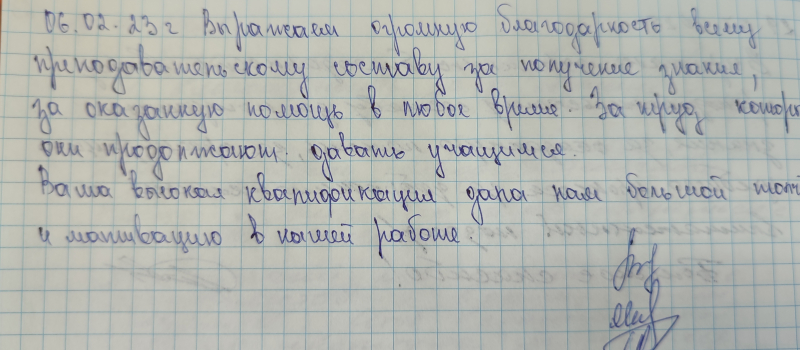 06.02.23г Выражаем огромную благодарность всему
преподавательскому составу за получение знания,
за оказанную помощь в любое время. За труд, котор
они продолжают давать учащимся.
Ваша высокая квалификация дала нам большой толч
и мотивацию в нашей работе.